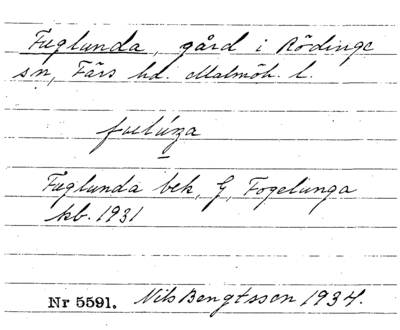 Fuglunda, gård i Rödinge
sn, Färs hd. Malmöh. l.
Fuglunda bek, G, Fogelunga
kb. 1931
Nr 5591. Nils Bengtsson 1934.